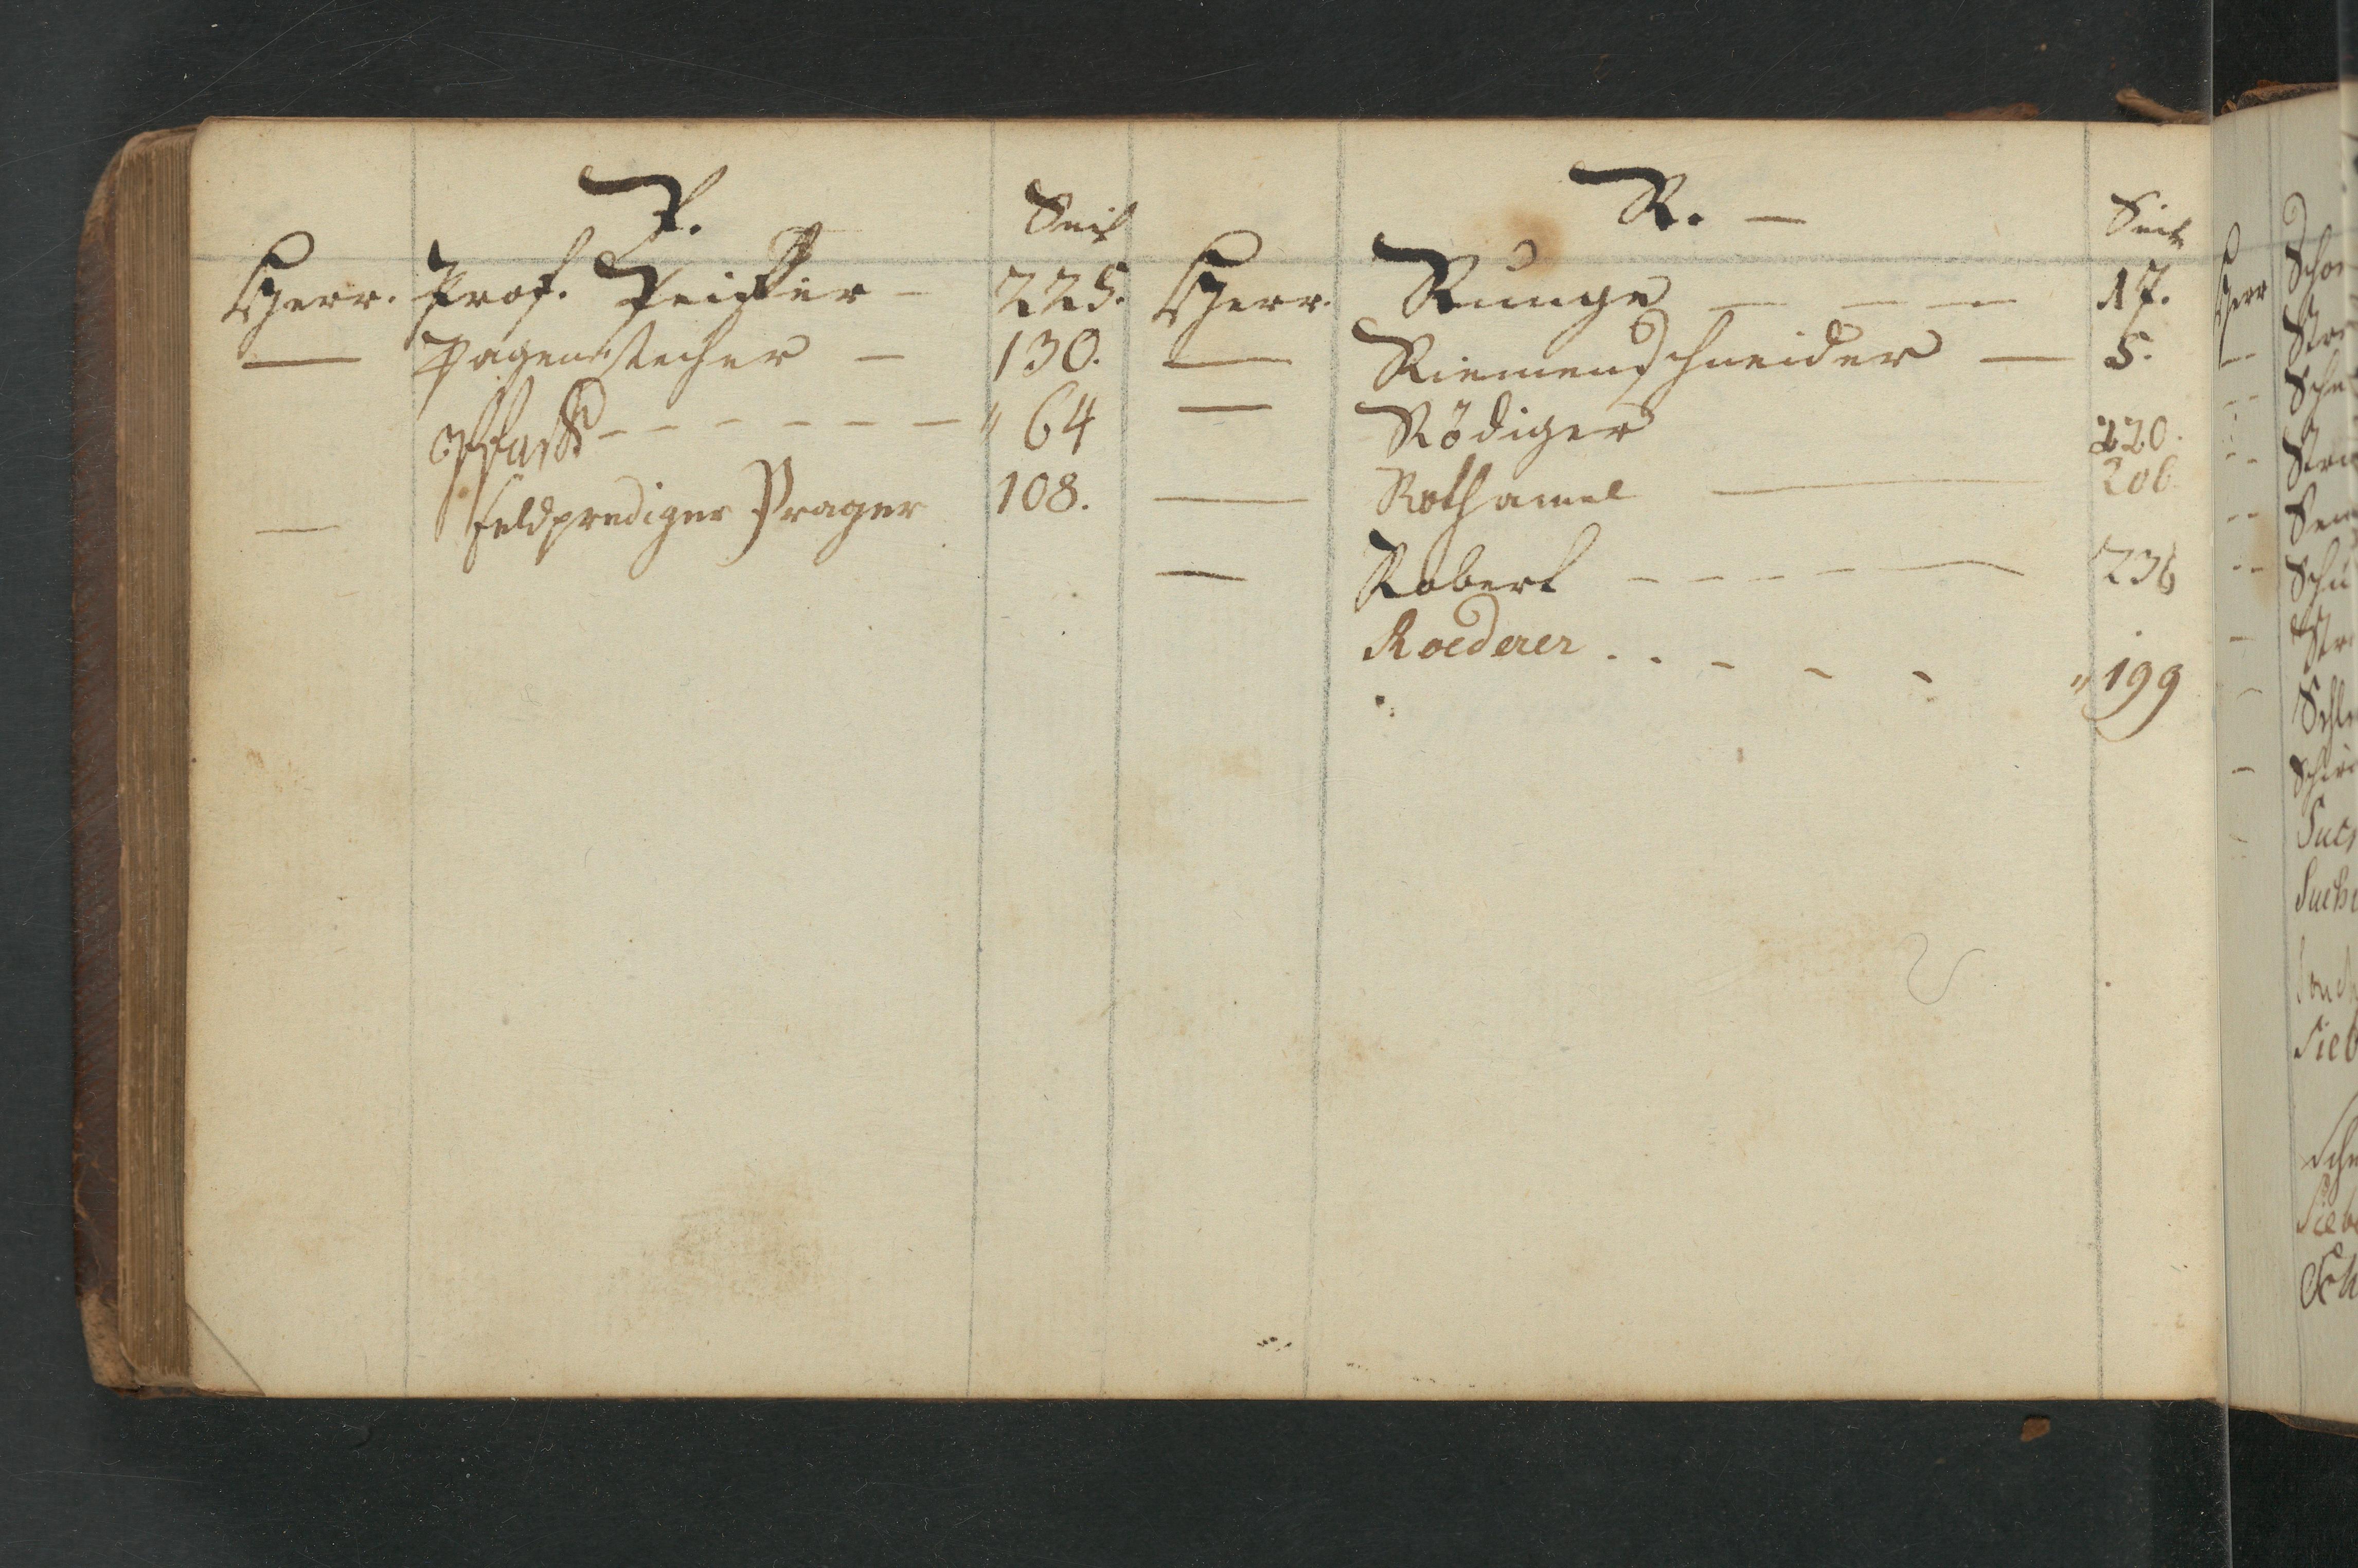 P.
Seit
Herr. Prof. Pfeiffer – 225.
— Pagenstecher – 130.
Pfaff - - - - - - " 64
— Feldprediger Prager 108.
R. –
Seite
Herr. Runge – – – 17.
— Riemenschneider — 5.
— Rödiger 220.
— Rothamel — 206
— Robert - - - - — 236
Roederer . . - - - " 199
Herr